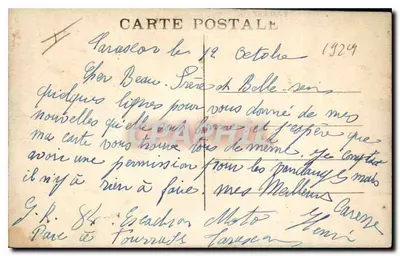 CARTE POSTALE
Tarascon le 12 Octobre 1929
Cher Beau-Frères et Belle-sœur
quelques lignes pour vous donné de mes
nouvelles qu'elle sont bonne et j'espère que
ma carte vous trouve tous de même. Je comptais
avoir une permission pour les vendanges mais
il n'y a rien à faire. mes Meilleurs Caresse
Henri
G.R. 84. Escadron Moto
Parc à Fourrages Tarascon